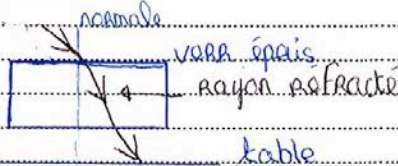 normale
verr épais
rayon réfracté
table